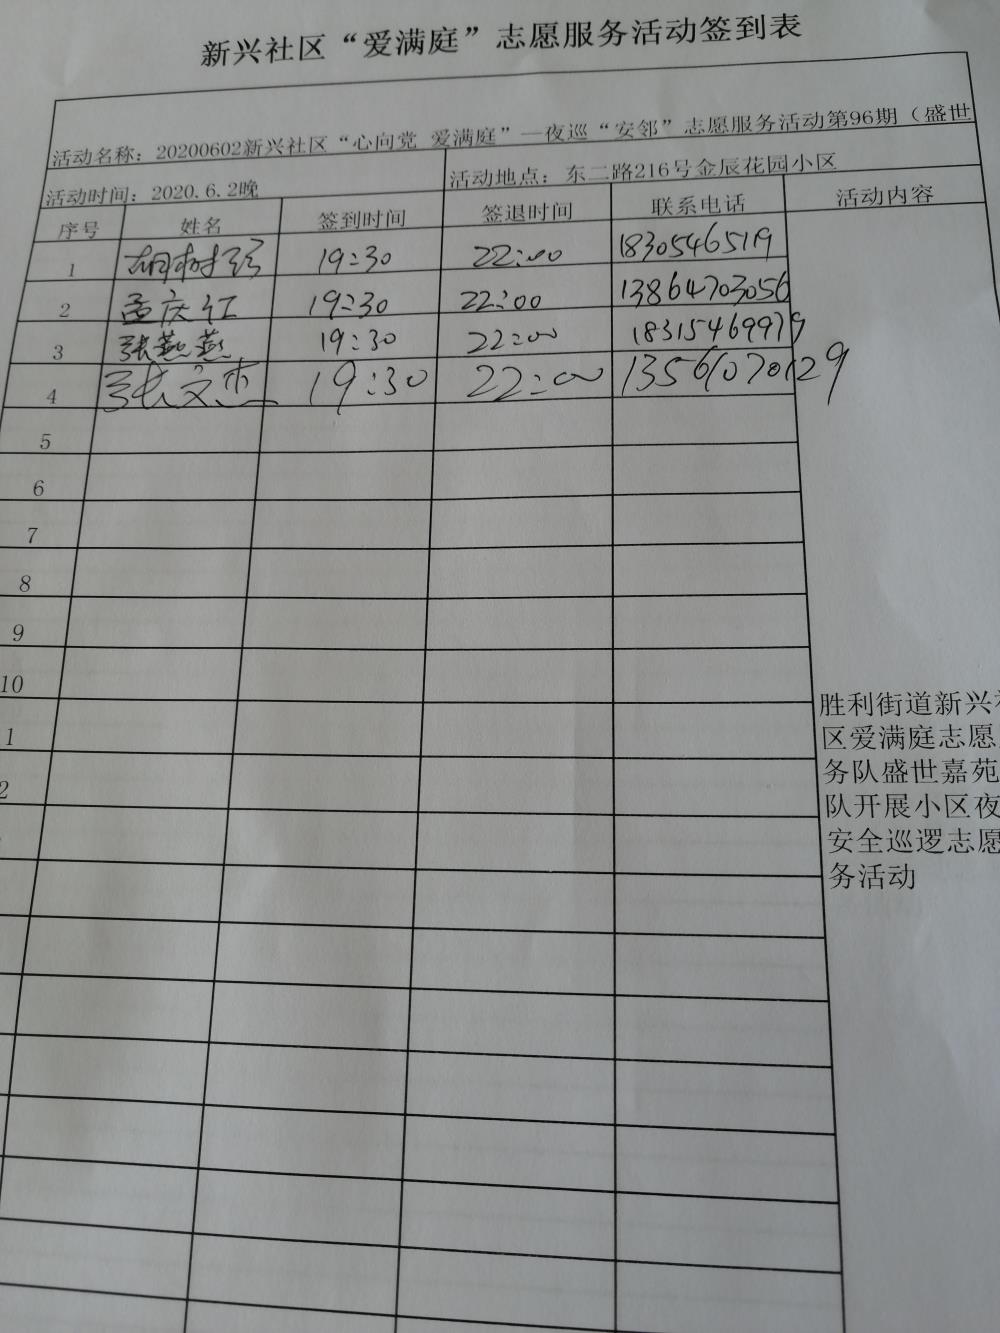 新兴社区“爱满庭”志愿服务活动签到表
活动名称：20200602新兴社区“心向党 爱满庭”—夜巡“安邻”志愿服务活动第96期（盛世
活动时间：2020.6.2晚 活动地点：东二路216号金辰花园小区
序号 姓名 签到时间 签退时间 联系电话 活动内容
1 胡树 19:30 22:00 18305465119
2 孟庆红 19:30 22:00 13864703056
3 张燕燕 19:30 22:00 18315469979
4 张文杰 19:30 22:00 13561070129
5
6
7
8
9
10
1
2
胜利街道新兴社
区爱满庭志愿
务队盛世嘉苑
队开展小区夜
安全巡逻志愿
务活动